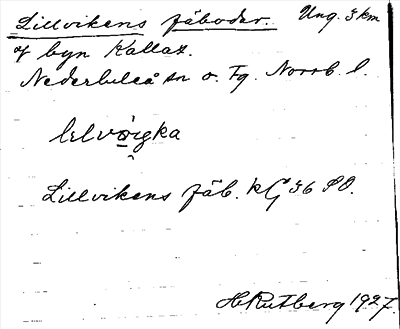 Lillvikens fäbodar. Ung. 3 km
af byn Kallax.
Nederluleå sn o. Tg. Norrb. l.
lɩlvø̱igka
Lillvikens fäb. kG 36 SO.
H Rutberg 1927.